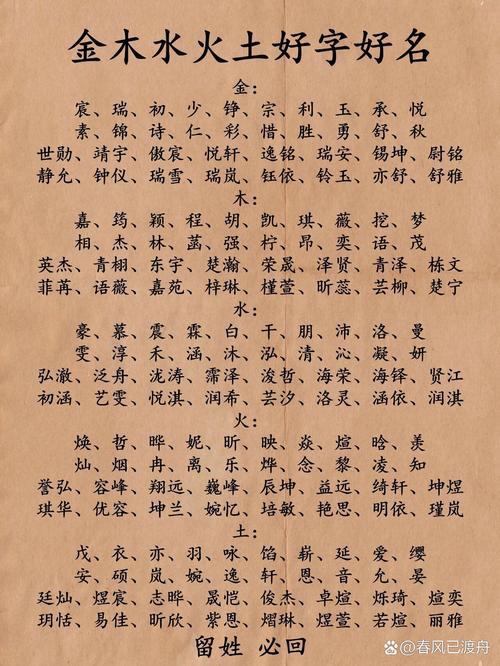 金木水火土好字好名
金：
宸、瑞、初、少、铮、宗、利、玉、承、悦
素、锦、诗、仁、彩、惜、胜、勇、舒、秋
世勋、靖宇、傲宸、悦轩、逸铭、瑞安、锡坤、尉铭
静允、钟仪、瑞雪、瑞岚、钰依、铃玉、亦舒、舒雅
木：
嘉、筠、颖、程、胡、凯、琪、薇、挖、梦
相、杰、林、菡、强、柠、昂、奕、语、茂
英杰、青栩、东宇、楚瀚、荣晟、泽贤、青泽、栋文
菲苒、语薇、嘉苑、梓琳、槿萱、昕蕊、芸柳、楚宁
水：
豪、慕、震、霖、白、干、朋、沛、洛、曼
雯、淳、禾、涵、沐、泓、清、沁、凝、妍
弘澈、泛舟、泷涛、霈泽、浚哲、海荣、海铎、贤江
初涵、艺雯、悦淇、润希、芸汐、洛灵、涵依、润淇
火：
焕、哲、晔、妮、昕、映、焱、煊、晗、羡
灿、烟、冉、离、乐、烨、念、黎、凌、知
誉弘、容峰、翔远、巍峰、辰坤、益远、绮轩、坤煜
琪华、优容、坤兰、婉忆、培敏、艳思、明依、瑾岚
土：
戊、衣、亦、羽、咏、馅、崭、延、爱、缨
安、硕、岚、婉、逸、轩、恩、音、允、晏
廷灿、煜宸、志晔、晟恺、俊杰、卓煊、烁琦、煊奕
玥恬、易佳、昕欣、紫恩、熠琳、煜萱、若煊、丽雅
留姓 必回
@春风已渡舟